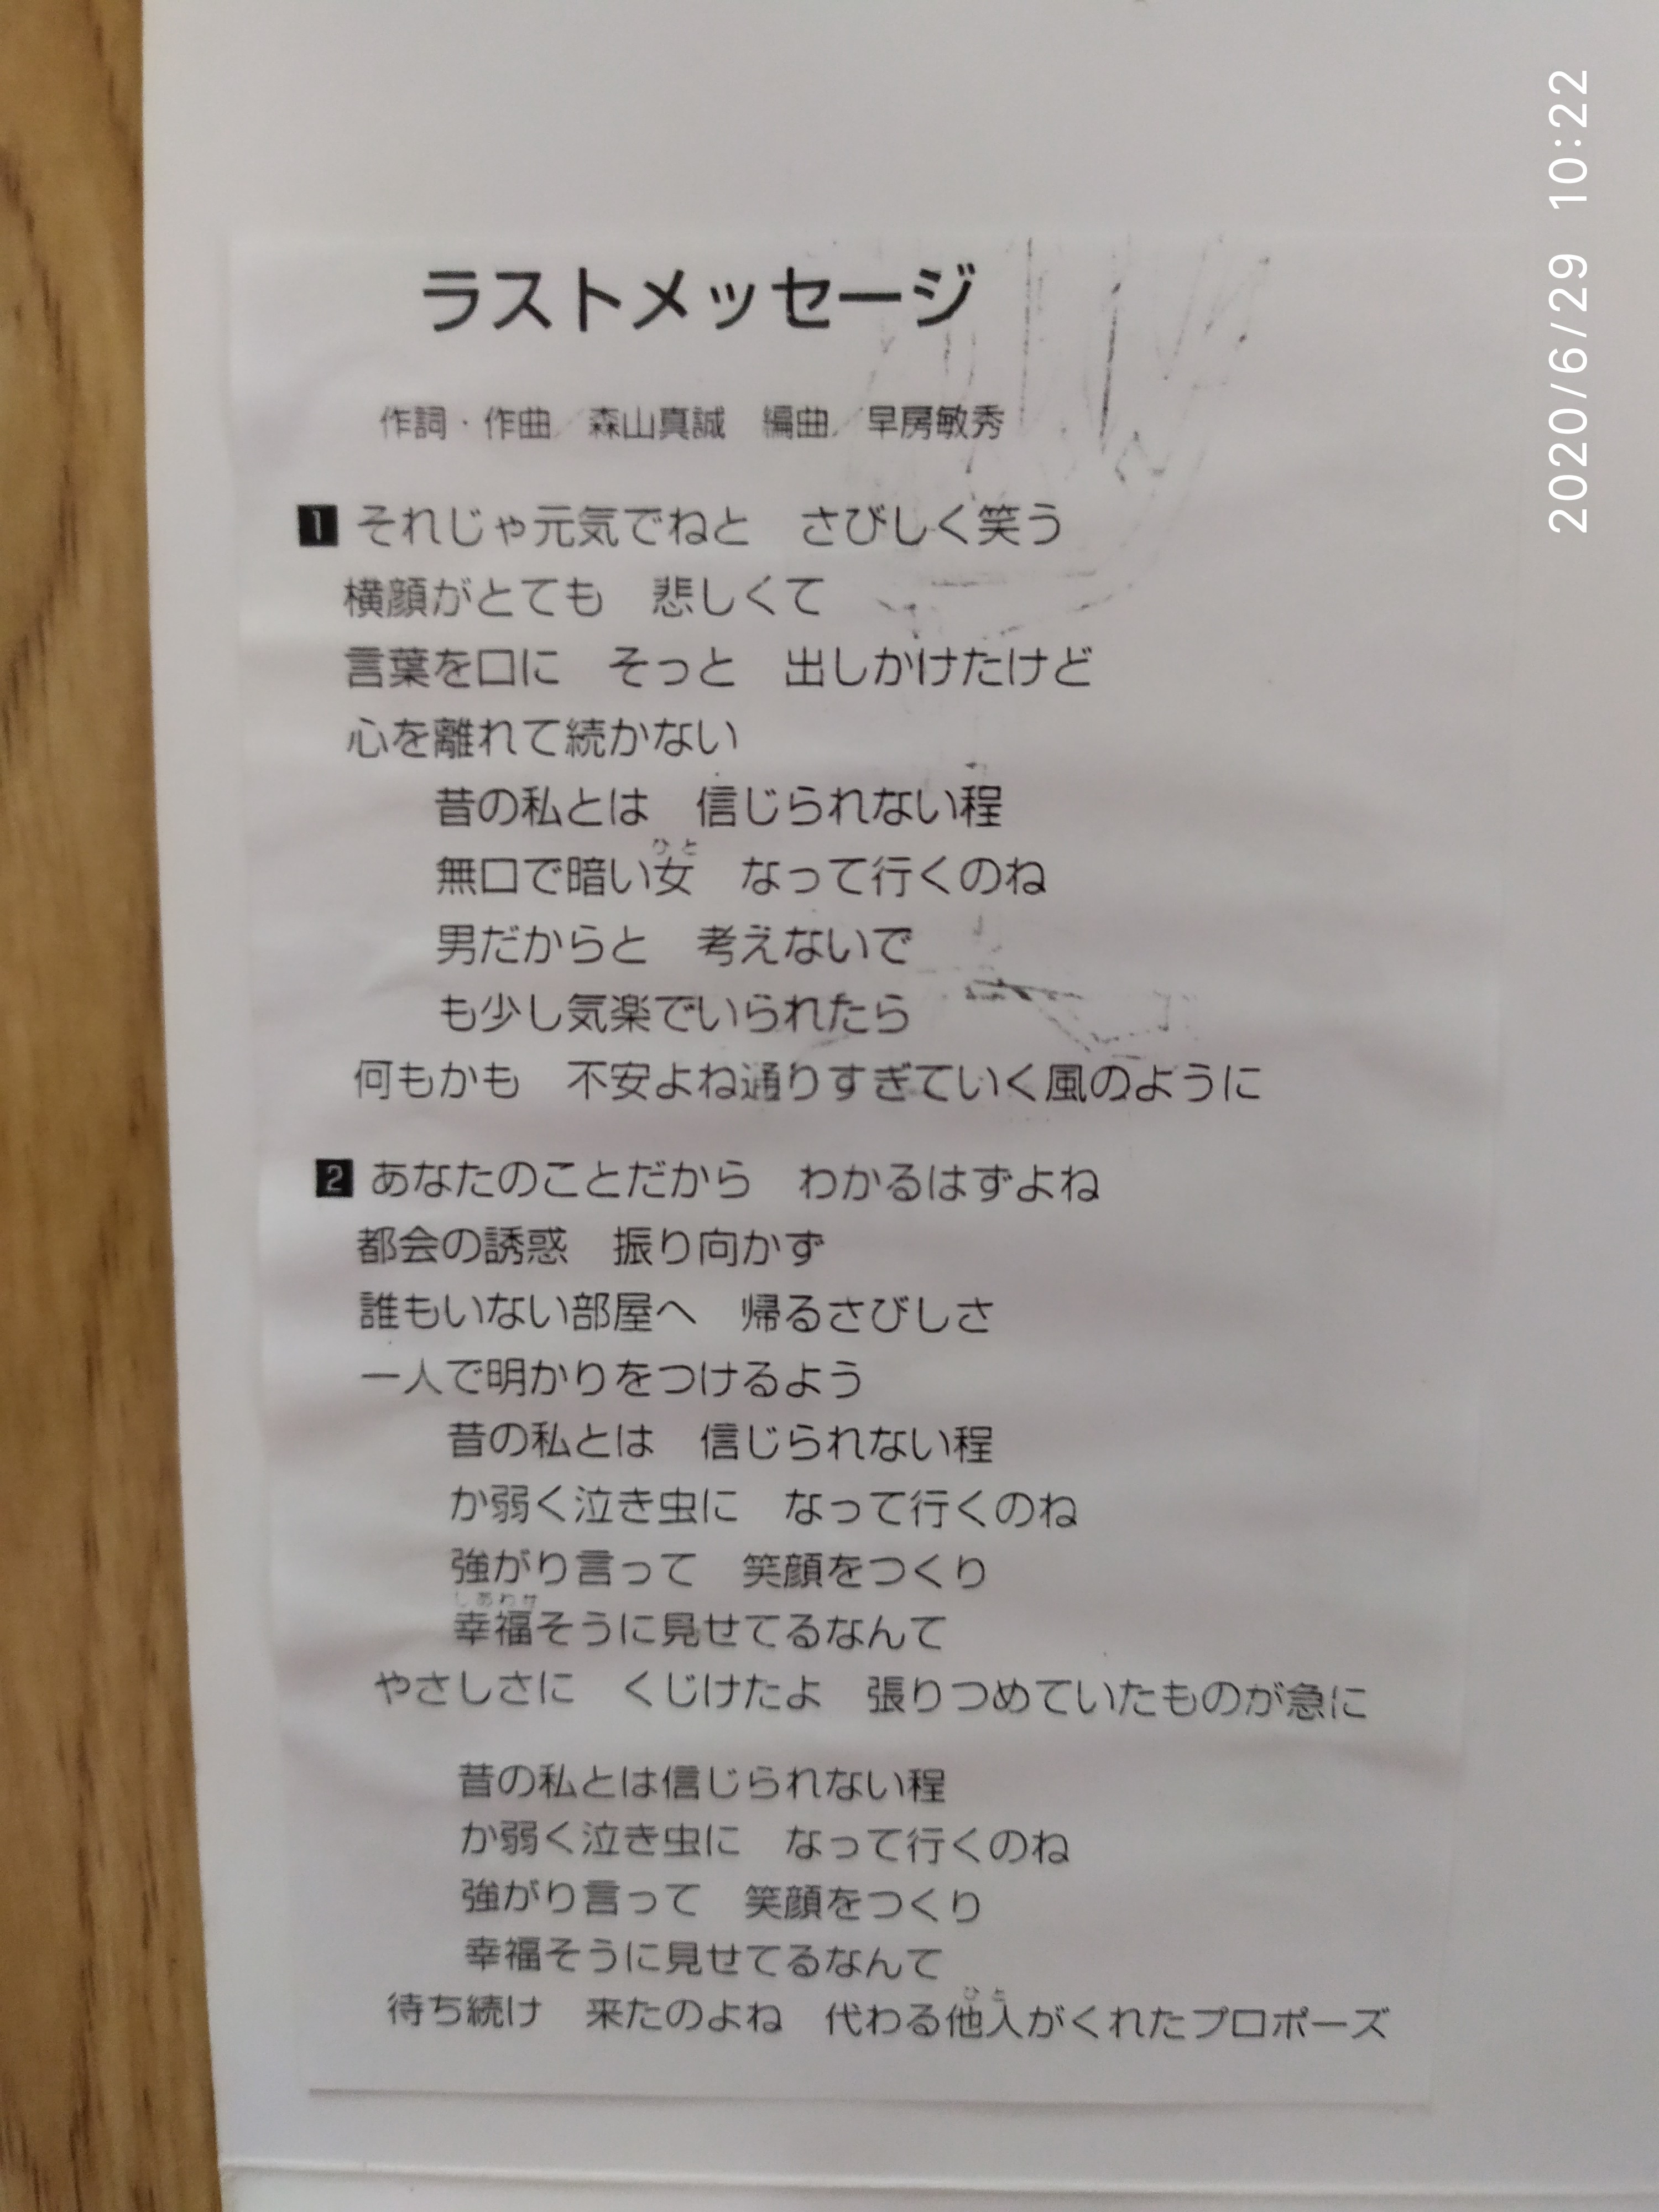 2020/6/29 10:22
ラストメッセージ
作詞・作曲／森山真誠　編曲／早房敏秀
1 それじゃ元気でねと　さびしく笑う
横顔がとても　悲しくて
言葉を口に　そっと　出しかけたけど
心を離れて続かない
昔の私とは　信じられない程
ひと
無口で暗い女　なって行くのね
男だからと　考えないで
も少し気楽でいられたら
何もかも　不安よね通りすぎていく風のように
2 あなたのことだから　わかるはずよね
都会の誘惑　振り向かず
誰もいない部屋へ　帰るさびしさ
一人で明かりをつけるよう
昔の私とは　信じられない程
か弱く泣き虫に　なって行くのね
強がり言って　笑顔をつくり
しあわせ
幸福そうに見せてるなんて
やさしさに　くじけたよ　張りつめていたものが急に
昔の私とは信じられない程
か弱く泣き虫に　なって行くのね
強がり言って　笑顔をつくり
幸福そうに見せてるなんて
ひと
待ち続け　来たのよね　代わる他人がくれたプロポーズ